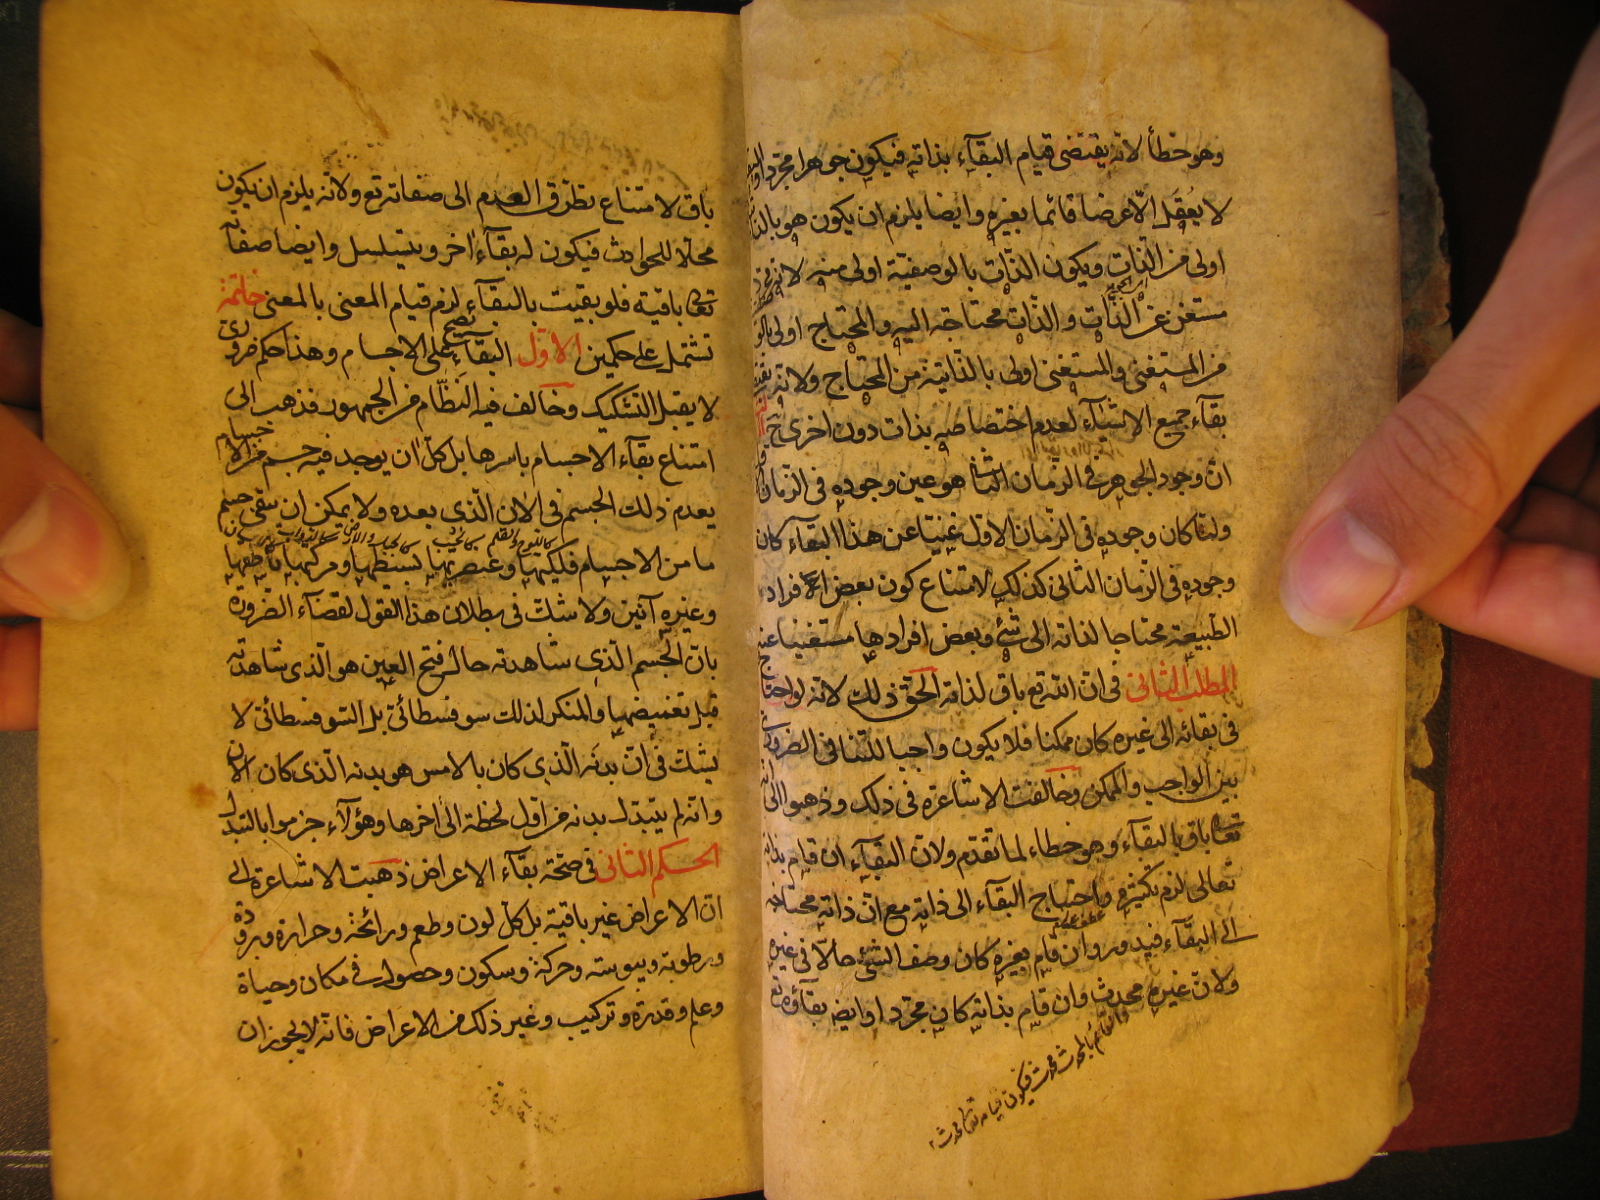 وهو خطأ لانه يقتضى قيام البقآء بذاته فيكون جوهرا مجردا
لا يعقل الّا عرضا قائما بغيره وايضا يلزم ان يكون هو بالذات
اولى من الذات ويكون الذات بالوصفية اولى منه لانه مجرد
مستغن عن الذات والذات محتاجة اليه والمحتاج اولى
من المستغنى والمستغنى اولى بالذاتية من المحتاج ولانه يقتضى
بقآء جميع الاشيآء لعدم اختصاصه بذات دون اخرى
انّ وجود الجوهر فى الزمان الثانى هو عين وجوده فى الزمان
ولما كان وجوده فى الزمان الاول غنيا عن هذا البقآء كان
وجوده فى الزمان الثانى كذلك لامتناع كون بعض افراد
الطبيعة محتاجا لذاته الى شئ وبعض افرادها مستغنيا عنه
المطلب الثانى فى ان الله تع باق لذاته الحق ذلك لانه لو احتاج
فى بقائه الى غيره كان ممكنا فلا يكون واجبا للتنافى الضرورى
بين الواجب والممكن وخالفت الاشاعرة فى ذلك وذهبوا الى انه
تعالى باق بالبقآء وهو خطاء لما تقدم ولان البقآء ان قام بذاته
تعالى لزم تكثره واحتياج البقآء الى ذاته مع انّ ذاته محتاجة
الى البقآء فيدور وان قام بغيره كان وصف الشئ حالّا فى غيره
ولان غيره محدث وان قام بذاته كان مجردا وايضا بقآؤه تع
والقائم بالمحدث محدث فيكون
باق لامتناع تطرق العدم الى صفاته تع ولانه يلزم ان يكون
محلا للحوادث فيكون له بقآء اخر ويتسلسل وايضا صفاته
تعالى باقية فلو بقيت بالبقآء لزم قيام المعنى بالمعنى خاتمة
تشتمل على حكمين الاول البقآء يصح على الاجسام وهذا حكم ضرورى
لا يقبل التشكيك وخالف فيه النظّام من الجمهور فذهب الى
امتناع بقآء الاجسام باسرها بل كل ان يوجد فيه جسم من الاجسام
يعدم ذلك الجسم فى الآن الّذى بعده ولا يمكن ان يبقى جسم
ما من الاجسام فلكيها وعنصريها بسيطها ومركبها ناطقها
وغيره آنين ولا شك فى بطلان هذا القول لقضآء الضرورة
بان الجسم الّذى شاهدته حال فتح العين هو الّذى شاهدته
قبل تغميضها والمنكر لذلك سوفسطائى بل السوفسطائى لا
يشك فى ان بدنه الّذى كان بالامس هو بدنه الّذى كان الآن
وانه لم يتبدل بدنه من اول لحظة الى آخرها وهؤلآء جزموا بالتبدل
الحكم الثانى فى صحة بقآء الاعراض ذهبت الاشاعرة الى
ان الاعراض غير باقية بل كل لون وطعم ورائحة وحرارة وبرودة
ورطوبة ويبوسة وحركة وسكون وحصول فى مكان وحياة
وعلم وقدرة وتركيب وغير ذلك من الاعراض فانه لا يجوز ان